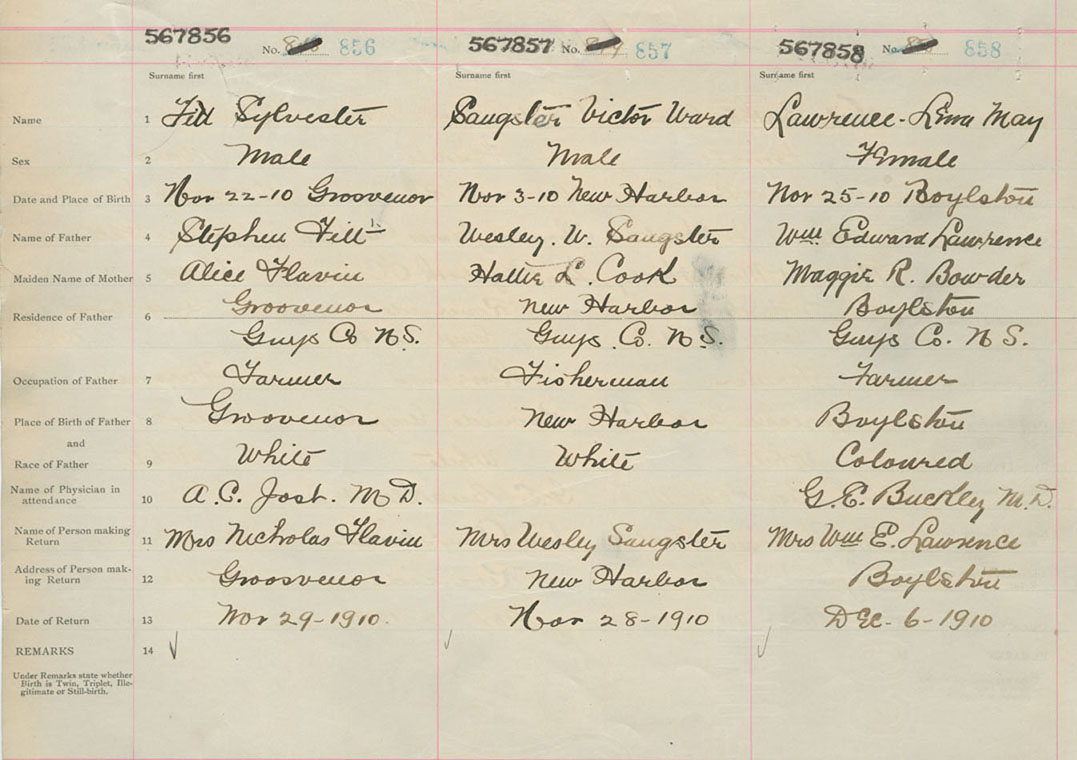 567856 No. 856 567857 No. 857 567858 No. 858
Surname first Surname first Surname first
Name 1 Sylvester Sangster Victor Ward Lawrence - Lena May
Sex 2 Male Male Female
Date and Place of Birth 3 Nov 22-10 Groosvenor Nov 3-10 New Harbor Nov 25-10 Boylston
Name of Father 4 Stephen Wesley. W. Sangster Wm Edward Lawrence
Maiden Name of Mother 5 Alice Flavin Hattie L. Cook Maggie R. Bowder
Groovenor New Harbor Boylston
Residence of Father 6
Guys Co N S. Guys. Co. N S. Guys Co. N S.
Occupation of Father 7 Farmer Fisherman Farmer
Place of Birth of Father 8 Groovenor New Harbor Boylston
and
Race of Father 9 White White Coloured
Name of Physician in attendance 10 A. C. Jost. M D. G. E. Buckley M. D.
Name of Person making Return 11 Mrs Nicholas Flavin Mrs Wesley Sangster Mrs Wm E. Lawrence
Address of Person mak-ing Return 12 Groosvenor New Harbor Boylston
Date of Return 13 Nov 29-1910. Nov 28-1910 Dec. 6-1910
REMARKS 14
Under Remarks state whether
Birth is Twin, Triplet, Ille-
gitimate or Still-birth.